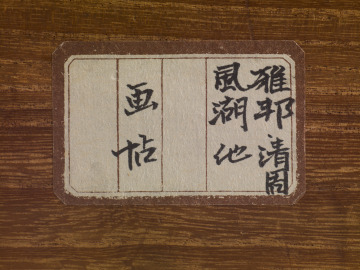 雅邦 清固
風湖 他
画帖